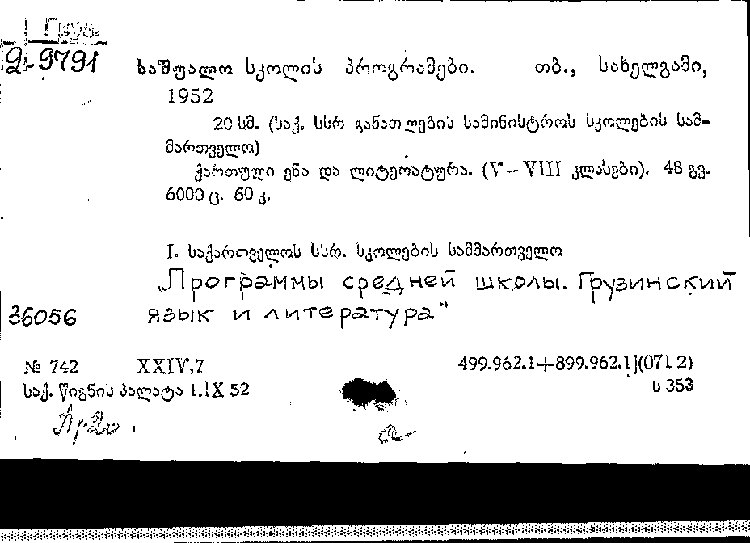 Груз.
2-9791
საშუალო სკოლის პროგრამები. თბ., სახელგამი,
1952
20 სმ. (საქ. სსრ განათლების სამინისტროს სკოლების სამ-
მართველო)
ქართული ენა და ლიტერატურა. (V–VIII კლასები). 48 გვ.
6000 ც. 60 კ.
I. საქართველოს სსრ. სკოლების სამმართველო
„Программы средней школы. Грузинский
36056 язык и литература"
№ 742 XXIV,7 499.962.1+899.962.1](071.2)
საქ. წიგნის პალატა 1.IX 52 ს 353